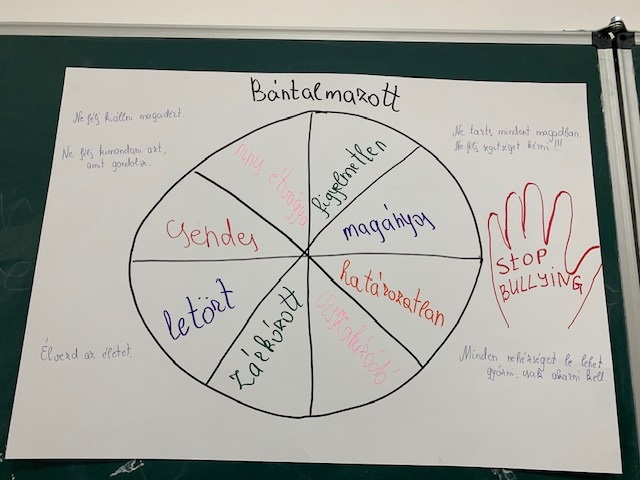 Bántalmazott
Ne félj kiállni magadért.
Ne félj kimondani azt,
amit gondolsz.
Ne tarts mindent magadban.
Ne félj segítséget kérni!!!
nincs étvágya
figyelmetlen
magányos
határozatlan
zárkózott
letört
csendes
STOP
BULLYING
Élvezd az életet.
Minden nehézséget le lehet
győzni, csak akarni kell